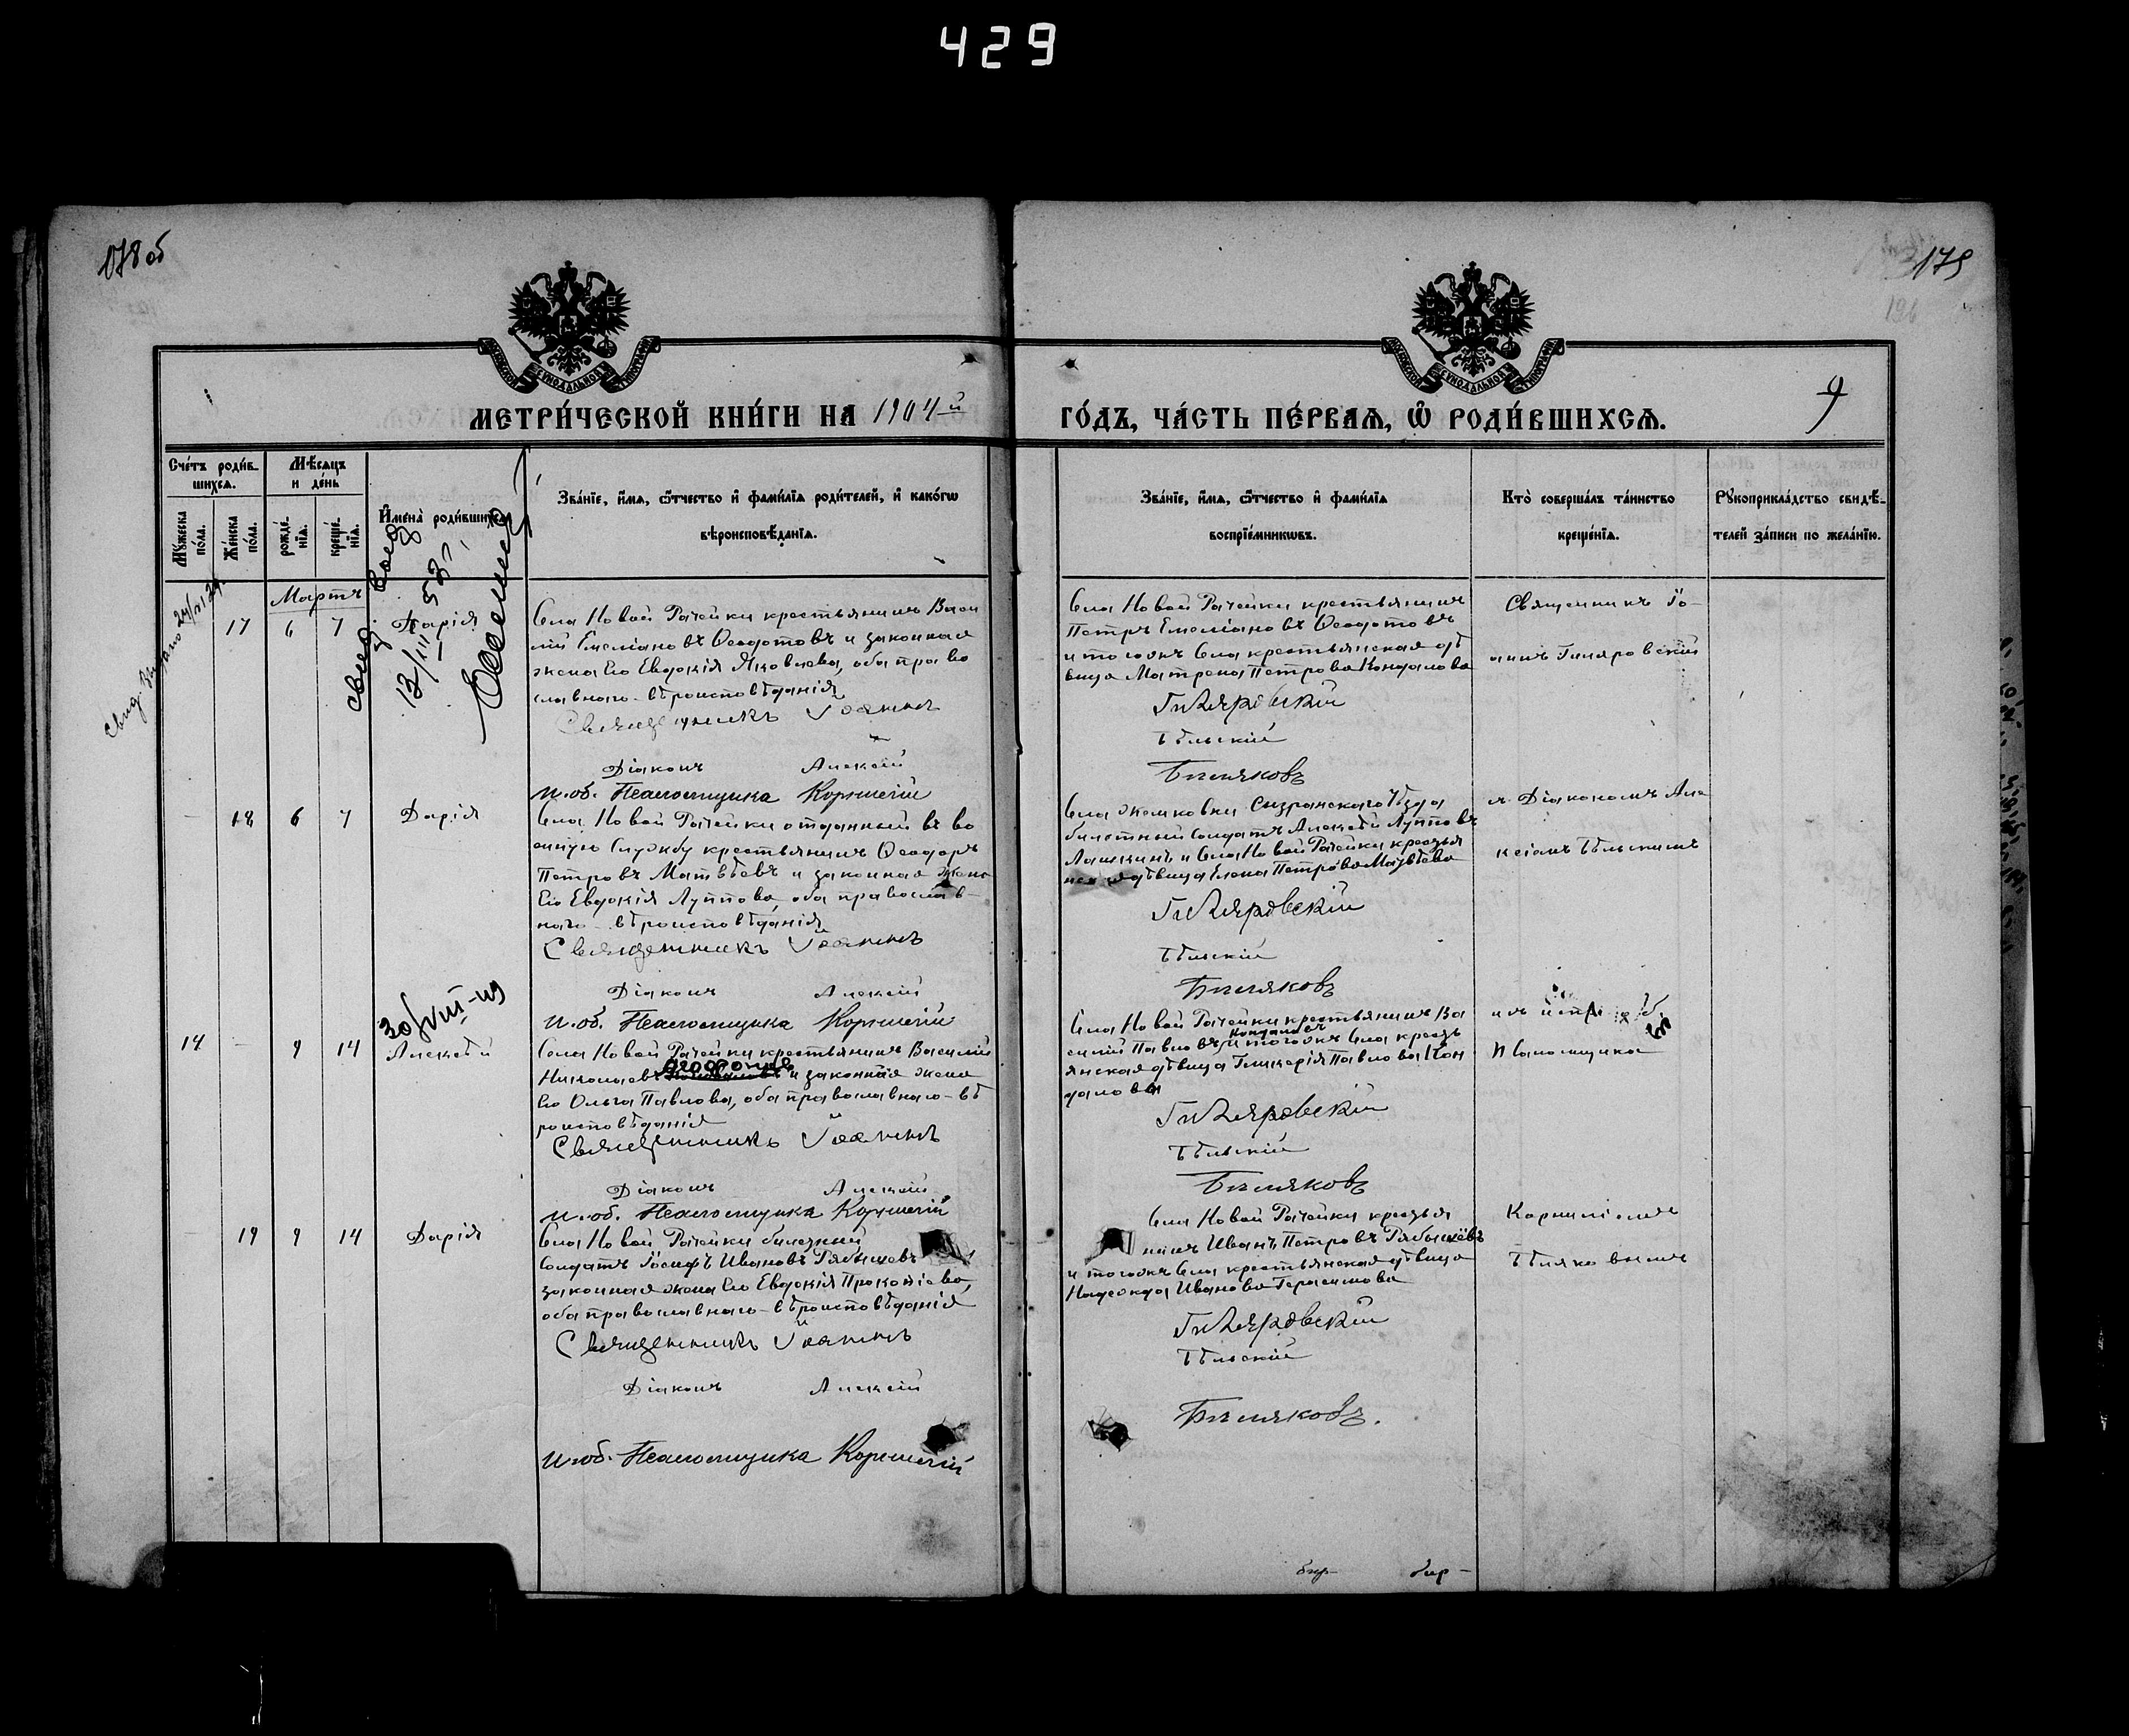 429
178 об
179
196
МЕТРИ́ЧЕСКОЙ КНИ́ГИ НА 1904 й
ГО́ДЪ, ЧА́СТЬ ПЕ́РВАѦ, Ѽ РОДИ́ВШИХСѦ.
9
Сче́тъ роди́вшихсѧ.
Мѣ́сѧцъ и де́нь
Мꙋ́жеска по́ла.
Же́нска по́ла.
рожде́нїѧ.
креще́нїѧ.
И҆мена̀ роди́вшихсѧ.
Зва́нїе, и҆́мѧ, ѻ҆́тчество и҆ фами́лїѧ роди́телей, и҆ како́гѡ
вѣроисповѣ́данїѧ.
Зва́нїе, и҆́мѧ, ѻ҆́тчество и҆ фами́лїѧ
воспрїе́мникѡвъ.
Кто̀ соверша́лъ та́инство
креще́нїѧ.
Рꙋкоприкла́дство свидѣ́-
телей за́писи по жела́нїю.
Мартъ
17 6 7 Дарія
Села Новой Рачейки крестьянинъ Васи
лій Емеліановъ Ѳеодотовъ и законная
жена его Евдокія Яковлева, оба право
славнаго вѣроисповѣданія
Священникъ Іоаннъ
Діаконъ Алексій
И. об. Псаломщика Корнилій
Села Новой Рачейки крестьянинъ
Петръ Емеліановъ Ѳеодотовъ
и тогожъ села крестьянская дѣ
вица Матрена Петрова Кондалова
Гиляровскій
Бѣльскій
Бѣляковъ
Священникъ Іо-
аннъ Гиляровскій
18 6 7 Дарія
Села Новой Рачейки отданный въ во
енную службу крестьянинъ Ѳеодоръ
Петровъ Матвѣевъ и законная жена
его Евдокія Луппова, оба православ-
наго вѣроисповѣданія
Священникъ Іоаннъ
Діаконъ Алексій
И. об. Псаломщика Корнилій
билетный солдатъ Алексѣй Лупповъ
Лашкинъ и села Новой Рачейки крестья
дѣвица Елена Петрова Матвѣева
Гиляровскій
Бѣльскій
Бѣляковъ
съ Діакономъ Але
ксіемъ Бѣльскимъ
30/VIII-49
14 - 9 14 Алексѣй
Села Новой Рачейки крестьянинъ Василий
Николаевъ и законная жена
его Ольга Павлова, оба православнаго вѣ
роисповѣданія
Священникъ Іоаннъ
Діаконъ Алексій
И. об. Псаломщика Корнилій
Села Новой Рачейки крестьянинъ Ва
силій Павловъ Кондаловъ и тогожъ села кресть
янская дѣвица Гликерія Павлова Кон
далова
Гиляровскій
Бѣльскій
Бѣляковъ
Псаломщика
19 9 14 Дарія
Села Новой Рачейки билетный
солдатъ Іосифъ Ивановъ Рябышевъ
законная жена его Евдокія Прокопіева,
оба православнаго вѣроисповѣданія
Священникъ Іоаннъ
Діаконъ Алексій
И. об. Псаломщика Корнилій
Села Новой Рачейки крестья
нинъ Иванъ Петровъ Рябышевъ
и тогожъ села крестьянская дѣвица
Надежда Иванова Герасимова
Гиляровскій
Бѣльскій
Бѣляковъ.
Корниліемъ
Бѣляковымъ